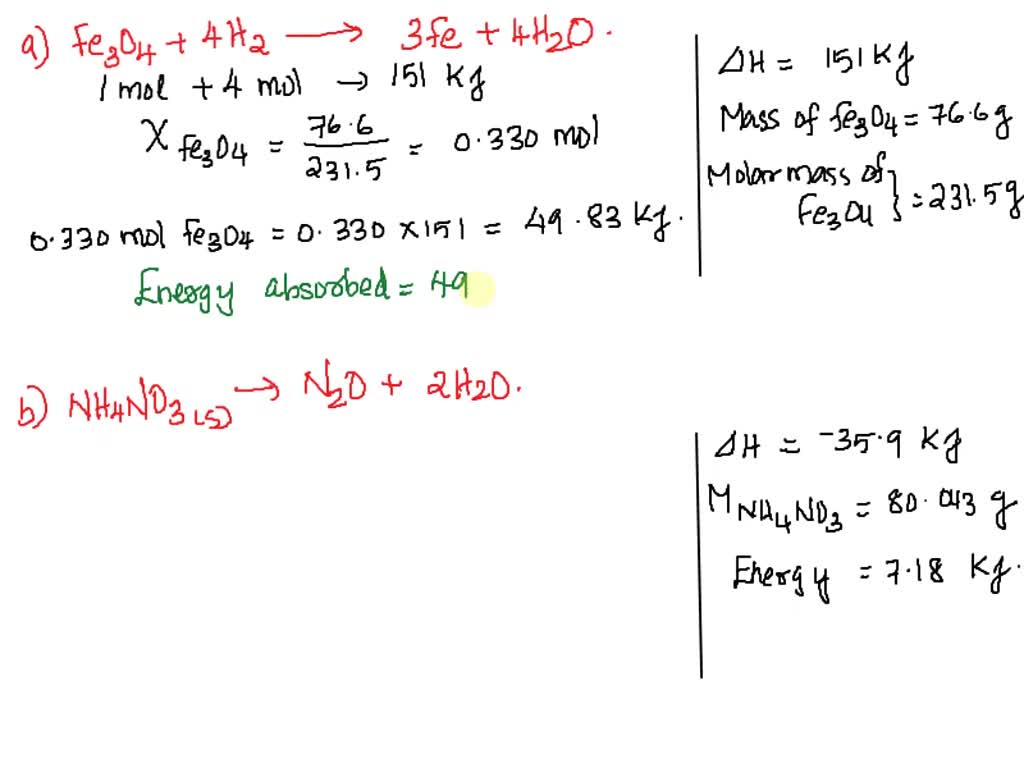 a) Fe3O4 + 4H2 → 3fe + 4H2O.
1 mol + 4 mol → 151 KJ
X Fe3O4 = 76.6 / 231.5 = 0.330 mol
0.330 mol Fe3O4 = 0.330 × 151 = 49.83 KJ.
Energy absorbed = 49
ΔH = 151 KJ
Mass of fe3O4 = 76.6g
Molar mass of Fe3O4 } = 231.5g
b) NH4NO3 (s) → N2O + 2H2O.
ΔH = -35.9 KJ
M NH4NO3 = 80.043 g
Energy = 7.18 KJ.